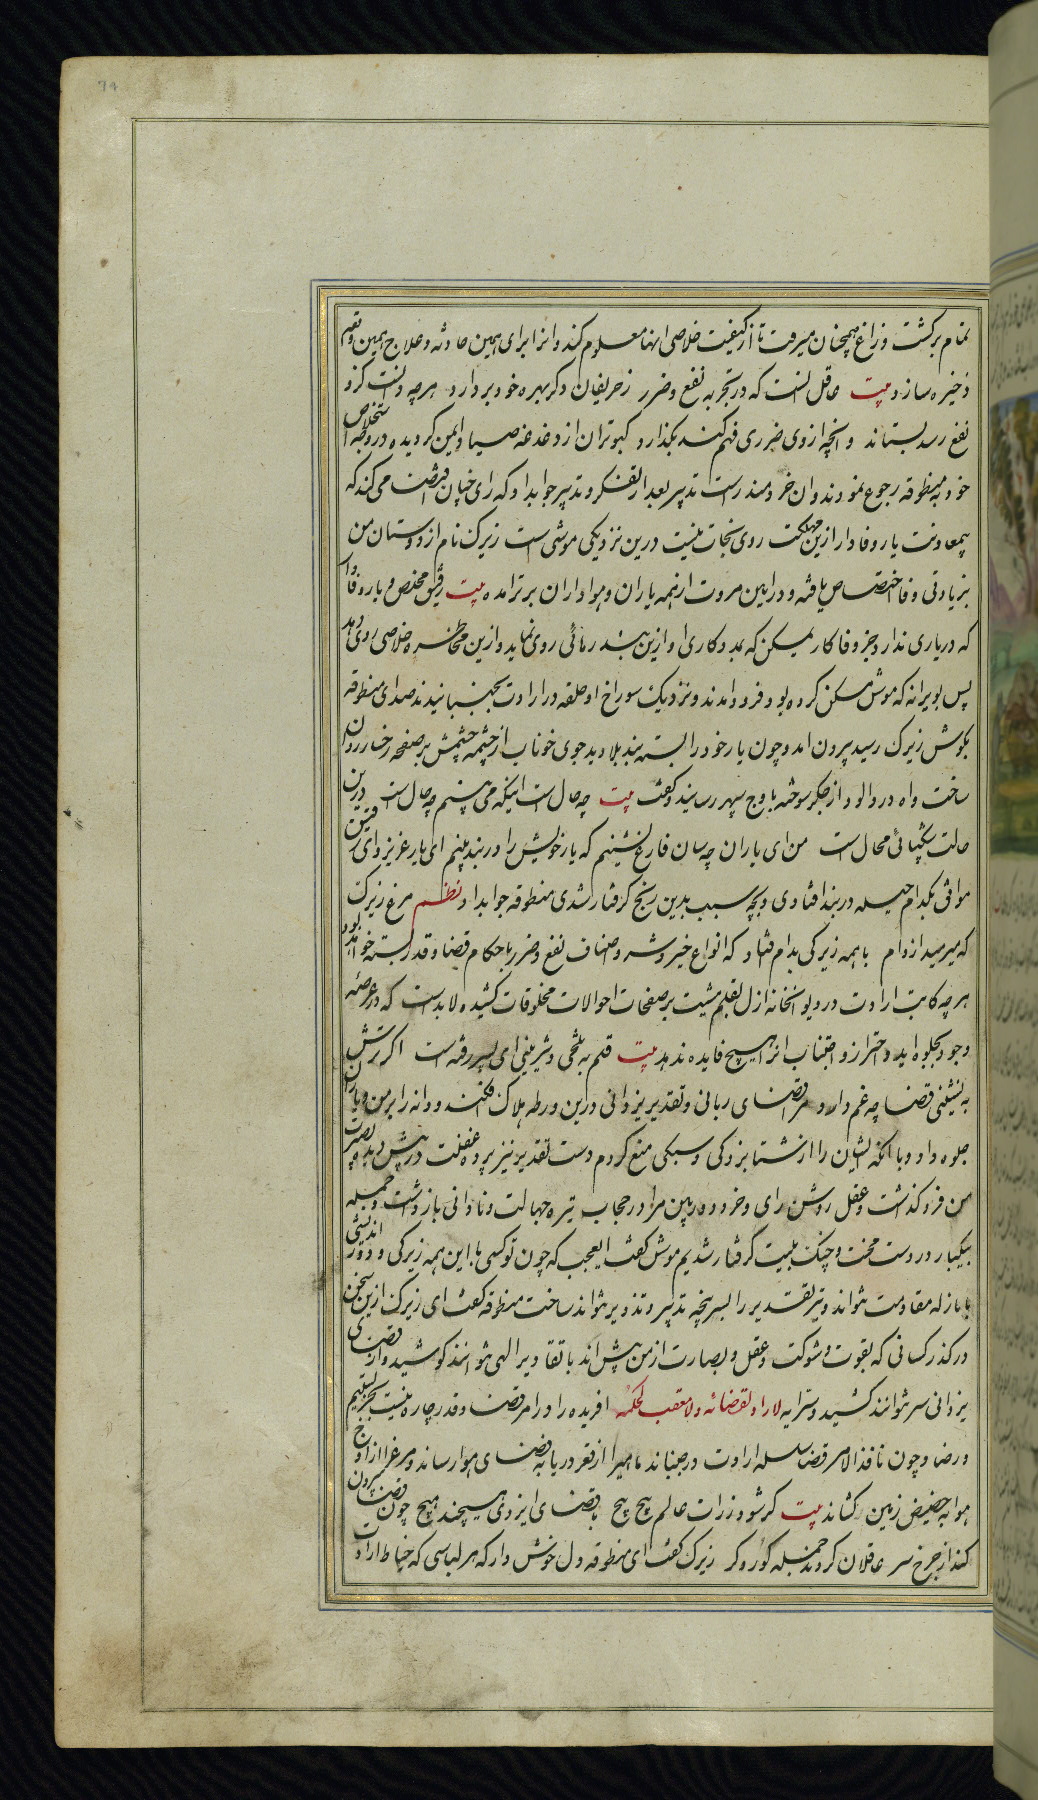 74
تمام برگشت و زاغ همچنان میرفت تا از کیفیت خلاصی انها معلوم کند و انرا برای همین حادثه و علاج همین وقیم
ذخیره سازد بیت عاقل انست که در تجربه نفع و ضرر ز حریفان دگر بهره خود بردارد هرچه دانست کزو
نفع رسد بستاند و انچه از وی ضرری فهم کند بگذارد کبوتران از دغدغه صیاد ایمن گردیده در وجه استخلاص
خود بمطوقه رجوع نمودند و ان خردمند راست تدبیر بعد از تفکر و تدبیر جواب داد که رای چنان اقتضا می کند که
بیمعاونت یار وفادار ازین مهلکت روی نجات نیست درین نزدیکی موشی است زیرک نام از دوستان من
بزیادتی وفا اختصاص یافته و در ایین مروت از همه یاران و هواداران برتر امده بیت رفیق مخلص و یار وفادار
که در یاری ندارد جز وفا کار یمکن که بمددکاری او ازین بند رهائی روی نماید و ازین مخاطره خلاصی روی دهد
پس بویرانه که موش مسکن کرده بود فرود امدند و نزدیک سوراخ او حلقه در ارادت بجنبانیدند صدای مطوقه
بگوش زیرک رسید بیرون امد و چون یار خود را بسته بند بلا دید جوی خوناب از چشمه چشمش بر صفحه رخسار روان
ساخت و اه درد الود از جگر سوخته باوج سپهر رسانید و گفت بیت چه حال است اینکه می بینم چه حال است درین
حالت شکیبائی محال است من ای یاران چه سان فارغ نشینم که یار خویش را در بند بینم ای یار عزیز و ای رفیق
موافق بکدام حیله در بند افتادی و بچه سبب بدین رنج گرفتار شدی مطوقه جواب داد نظم مرغ زیرک
که میرمید از دام با همه زیرکی بدام افتاد که انواع خیر و شر و اصناف نفع و ضرر باحکام قضا و قدر بسته خواهد بود
هرچه کاتب ارادت در دیوانخانه ازل بقلم مشیت بر صفحات احوالات مخلوقات کشیده لابد است که در عرصه
وجود بجلوه اید و احتراز و اجتناب از ان هیچ فایده ندهد بیت قلم به تلخی و شیرینی ای پسر رفته است اگر ترش
بنشینی قضا چه غم دارد مرا قضای ربانی و تقدیر یزدانی درین ورطه هلاک افکند و دانه را بر من و یاران
جلوه داد و با انکه ایشان را از شتابزدگی و سبکی منع کردم دست تقدیر نیز پرده غفلت در پیش دیده بصیرت
من فرو گذاشت و عقل روشن رای و خرد دوربین مرا در حجاب تیره جهالت و نادانی بازداشت و جمله
بیکبار در دست محنت و چنگ بلیت گرفتار شدیم موش گفت ای عجب که چون تو کسی با این همه زیرکی و دور اندیشی
با نازله مقاومت نتواند و تیر تقدیر را بسرپنجه تدبیر و تزویر نتواند ساخت مطوقه گفت ای زیرک ازین سخن
در گذر کسانی که بقوت و شوکت و عقل و بصارت از من بیش اند با تقادیر الهی نتوانند کوشید و از قضای
یزدانی سر نتوانند کشید و سرایه لا راد لقضائه و لا معقب لحکمه افریده را در امر قضا و قدر چاره نیست بجز تسلیم
و رضا و چون نافذ الامر قضا سلسله ارادت در جنباند ماهیرا از قعر دریا به فضای هوا رساند و مرغ را از اوج
هوا به حضیض زمین کشاند بیت گر شود ذرات عالم پیچ پیچ با قضای ایزدی هیچند هیچ چون قضا بیرون
کند از چرخ سر عاقلان گردند جمله کور و کر زیرک گفت ای مطوقه دل خوش دار که هر لباسی که خیاط ارادت